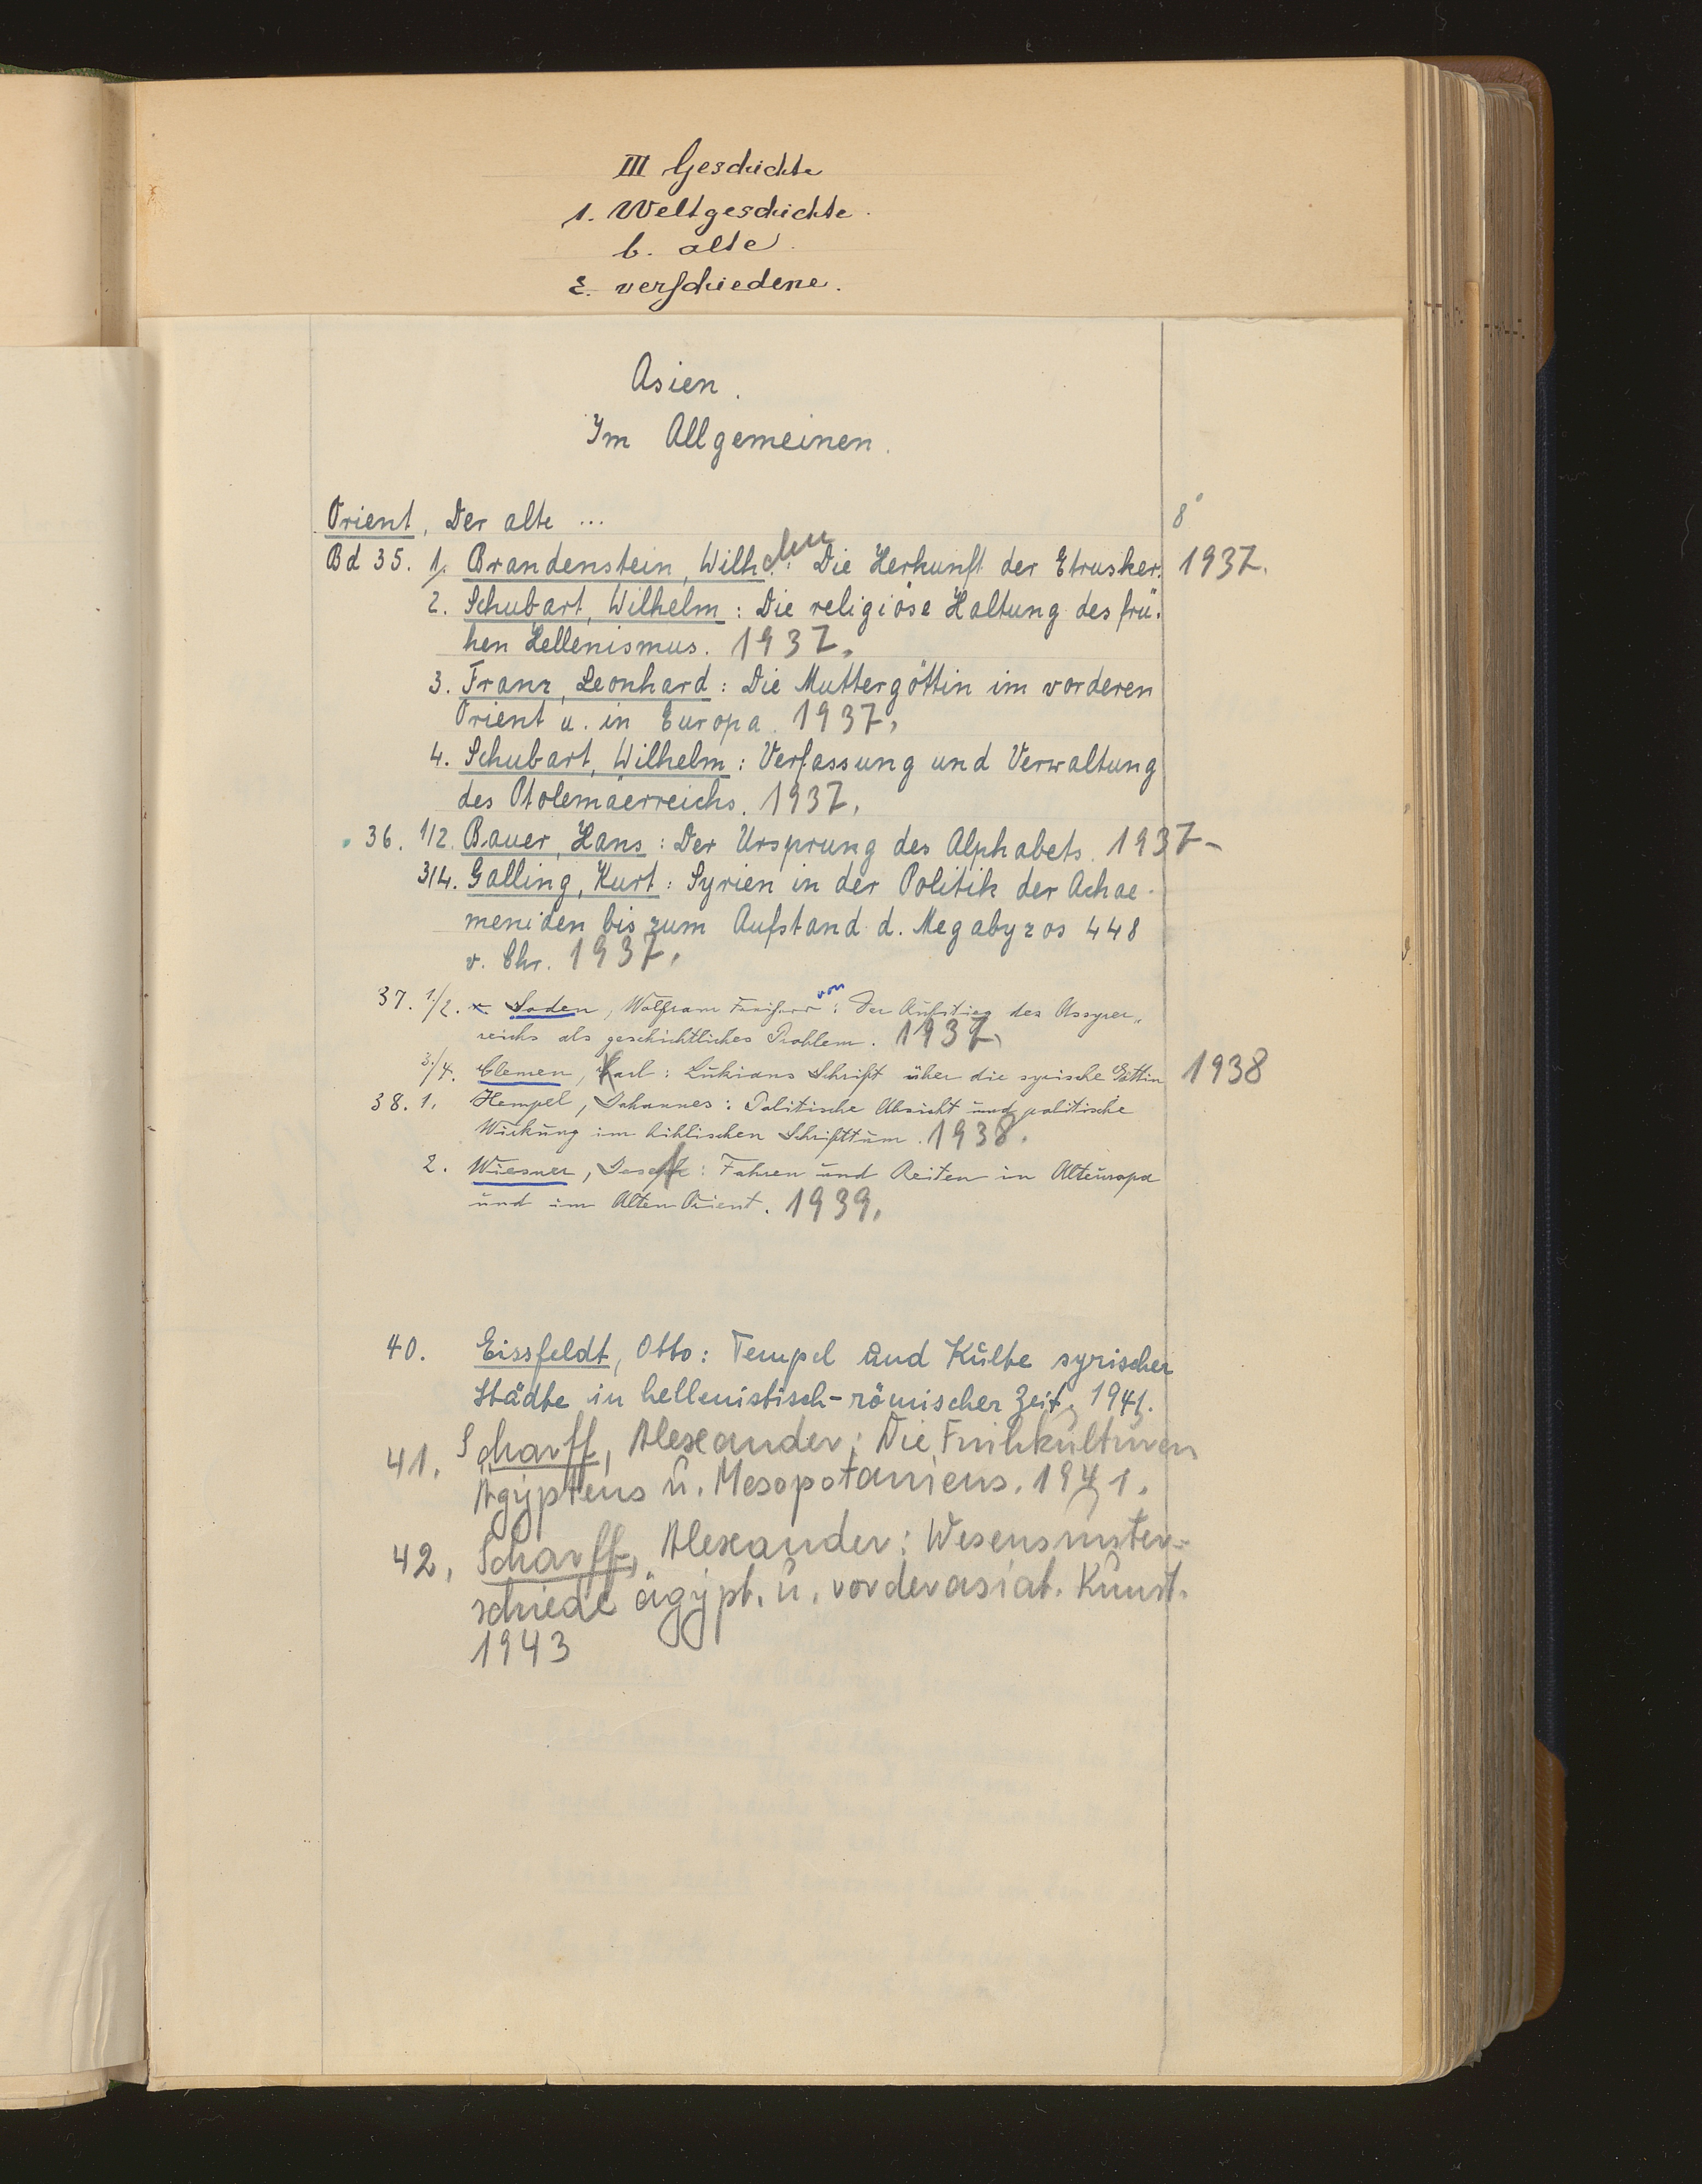 III Geschichte
1. Weltgeschichte.
b. alte.
ε. verschiedene.
Asien.
Im Allgemeinen.
Orient, Der alte ... 8°
Bd 35. 1. Brandenstein, Wilhelm: Die Herkunft der Etrusker. 1937.
2. Schubart, Wilhelm: Die religiöse Haltung des frü-
hen Hellenismus. 1937.
3. Franz, Leonhard: Die Muttergöttin im vorderen
Orient u. in Europa. 1937.
4. Schubart, Wilhelm: Verfassung und Verwaltung
des Ptolemäerreichs. 1937.
" 36. 1/2. Bauer, Hans: Der Ursprung des Alphabets. 1937-
3/4. Galling, Kurt: Syrien in der Politik der Achae-
meniden bis zum Aufstand d. Megabyzos 448
v. Chr. 1937.
37. 1./2. Soden, Wolfram Freiherr von: Der Aufstieg des Assyrer-
reichs als geschichtliches Problem. 1937.
3./4. Clemen, Karl: Lukians Schrift über die syrische Göttin 1938
38. 1. Hempel, Johannes: Politische Absicht und politische
Wirkung im biblischen Schrifttum. 1938.
2. Wiesner, Josef: Fahren und Reiten in Alteuropa
und im Alten Orient. 1939.
40. Eissfeldt, Otto: Tempel und Kulte syrischer
Städte in hellenistisch-römischer Zeit. 1941.
41. Scharff, Alexander: Die Frühkulturen
Ägyptens u. Mesopotamiens. 1941.
42. Scharff, Alexander: Wesensunter-
schiede ägypt. u. vorderasiat. Kunst.
1943